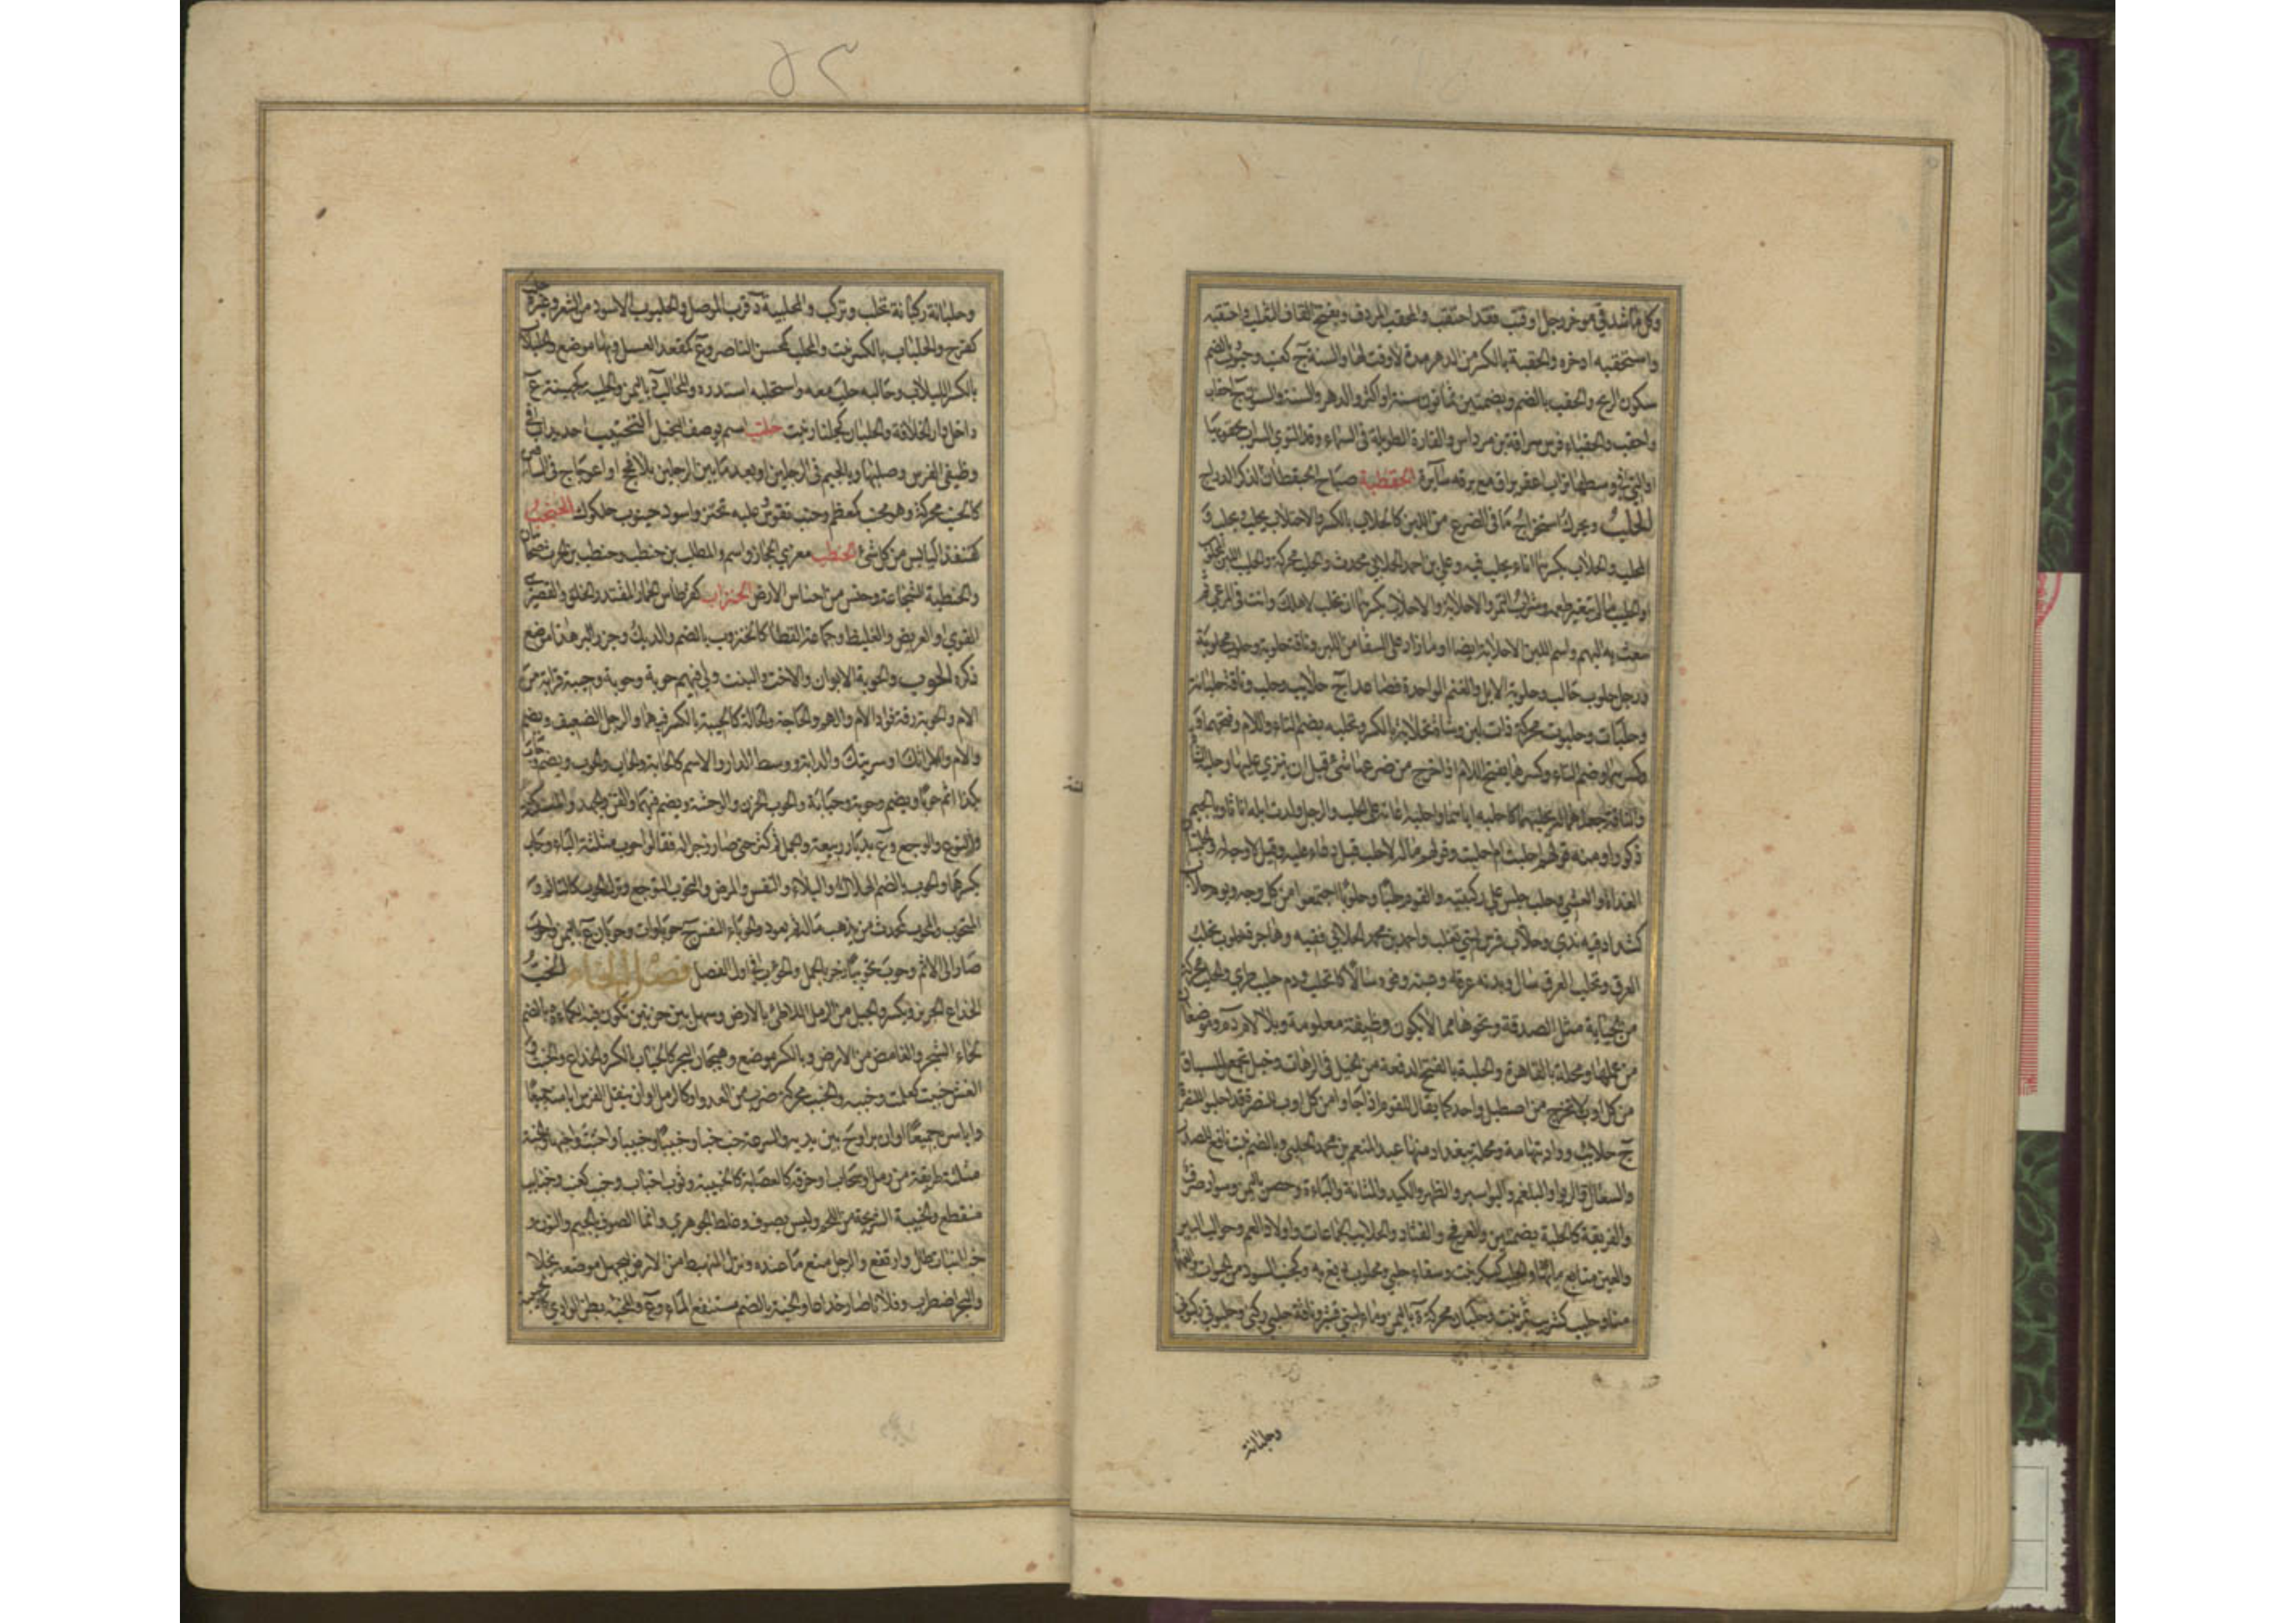 وكل ما شد في مؤخر رحل او قتب فقد احتقب والمحقب المردف وبفتح القاف الثعلب واحتقبه
واستحقبه ادخره والحقبة بالكسر من الدهر مدة لا وقت لها والسنة ج كعنب وحبوب وبالضم
سكون الريح والحقب بالضم وبضمتين ثمانون سنة او اكثر والدهر والسنة والسنون ج احقاب
واحقب والحقباء فرس سراقة بن مرداس والقارة الطويلة في السماء وقد التوى السراب بحقويها
او التي في وسطها تراب اعفر براق مع برقة سائره الحقطبة صياح الحيقطان لذكر الدراج
الحلب ويحرك استخراج ما في الضرع من اللبن كالحلاب بالكسر والاحتلاب يحلب ويحلب و
المحلب والحلاب بكسرهما اناء يحلب فيه وعلي بن احمد الحلابي محدث والحلب محركة والحليب اللبن المحلوب
او الحليب ما لم يتغير طعمه وشراب التمر والاحلابة والاحلاب بكسرهما ان تحلب لاهلك وانت في المرعى ثم
تبعث به اليهم واسم اللبن الاحلابة ايضا او ما زاد على السقا من اللبن وناقة حلوبة وحلوب محلوبة
ورجل حلوب حالب وحلوبة الابل والغنم الواحدة فصاعدا ج حلائب وحلب وناقة حلبانة
وحلباة وحلبوت محركة ذات لبن وشاة تحلابة بالكسر وتحلبة بضم التاء واللام وفتحهما و
كسرهما وضم التاء وكسرها بفتح اللام اذا خرج من ضرعها شيء قبل ان ينزى عليها وحلبه الشاة
والناقة جعلهما له يحلبهما كاحلبه اياهما واحلبه اعانه على الحلب والرجل ولدت ابله اناثا وبالجيم
ذكورا ومنه قولهم احلبت ام اجلبت وقولهم ماله لا حلب قيل دعاء عليه وقيل لا وجه له والحلبتان
الغداة والعشي وحلب جلس على ركبتيه والقوم حلبا وحلوبا اجتمعوا من كل وجه ويوم حلاب
كشداد فيه ندى وحلاب فرس لبني تغلب واحمد بن محمد الحلابي فقيه وهاجرة حلوب تحلب
العرق وتحلب العرق سال وبدنه عرقا وعينه وفوه سالا كانحلب ودم حليب طري والحلب محركة
من الجباية مثل الصدقة ونحوها مما لا يكون وظيفته معلومة وبلا لام د م وموضعان
من عملها ومحلة بالقاهرة والحلبة بالفتح الدفعة من الخيل في الرهان وخيل تجمع للسباق
من كل اوب لا تخرج من اصطبل واحد كما يقال للقوم اذا جاؤا من كل اوب للنصرة قد احلبوا للنصرة
ج حلائب وواد بتهامة ومحلة ببغداد منها عبد المنعم بن محمد الحلبي وبالضم نبت نافع للصدر
والسعال والربو والبلغم والبواسير والظهر والكبد والمثانة والباءة وحصن باليمن وسواد صرف
والفريقة كالحلبة بضمتين والعرفج والقتاد والحلائب الجماعات واولاد العم وحوالب البئر
والعين منابع مائها والحلب كسكر نبت وسقاء حلبي ومحلوب دبغ به وكجنب السود من الحيوان والفهماء
منا وحلبب كشربب ثمر نبت وحلبان محركة ة باليمن وماء لبني قشير وناقة حلبى ركبى وحلبوتى ركبوتى
وحلبانة
وحلبانة ركبانة تحلب وتركب والمحلبية د قرب الموصل والحلبوب الاسود من الشعر وغيره حلب
كفرح والحلباب بالكسر نبت والمحلب كمحسن الناصر وع كمقعد العسل وبهاء موضع والحلبلاب
بالكسر اللبلاب وحالبه حلب معه واستحلبه استدره والمحالب د باليمن والحليبة كجهينة ع
داخل دار الخلافة والحلبان كجلنار نبت حلتب اسم يوصف به البخيل التحنيب احديداب في
وظيفي الفرس وصلبها وبالجيم في الرجلين او بعد ما بين الرجلين بلا فحج او اعوجاج في الساقين
كالحنب محركة وهو محنب كمعظم وحنب تقوس عليه تحنن واسود حنبوب حلكوك الحنجب
كقنفذ اليابس من كل شيء الحنطب معزى الحجاز واسم والمطلب بن حنطب وحنطب بن الحرث صحابيان
والحنطبة الشجاعة وجنس من احناش الارض الحنزاب كقرطاس الحمار المقتدر الخلق والقصير
القوي او العريض والغليظ وجماعة القطا كالحنزوب بالضم والديك وجزر البر هذا موضع
ذكره الحوب والحوبة الابوان والاخت والبنت ولي فيهم حوبة وحوبة وحيبة قرابة من
الام والحوبة رقة فؤاد الام والهم والحاجة والحالة كالحيبة بالكسر فيهما والرجل الضعيف ويضم
والام وامراتك او سريتك والدابة ووسط الدار والاسم كالحابة والحاب والحوب ويضم وحاب
بكذا اثم حوبا ويضم وحوبة وحيابة والحوب الحزن والوحشة ويضم فيهما والفن والجهد والمسكنة
والنوع والوجع وع بديار ربيعة والجمل ثم كثر حتى صار زجرا له فقالوا حوب مثلثة الباء وحاب
بكسرها والحوب بالضم الهلاك والبلاء والنفس والمرض والتحوب التوجع وترك الحوب كالتاثم و
المتحوب والمحوب كمحدث من يذهب ماله ثم يعود والحوباء النفس ج حوباوات وحوبان ع باليمن واحوب
صار الى الاثم وحوب تحويبا زجر بالجمل والحوءب في اول الفصل فصل الخاء الخب
الخداع الجربز ويكسر والحبل من الرمل اللاطئ بالارض وسهل بين حزنين تكون فيه الكماءة وبالضم
لحاء الشجر والغامض من الارض وبالكسر موضع وهيجان البحر كالخباب بالكسر والخداع والخبث و
الغش خببت كعلمت وخببه والخبب محركة ضرب من العدو او كالرمل او ان ينقل الفرس ايامنه جميعا
واياسره جميعا او ان يراوح بين يديه والسرعة خب خبا وخببا وخبيبا واختب واخبها والخبة
مثلثة طريقة من رمل او سحاب او خرقة كالعصابة كالخبيبة وثوب اخباب وخبب كعنب وخبائب
متقطع والخبيبة الشريحة من اللحم وليس بصوف وغلط الجوهري وانما الصوف بالجيم والنون و
خب النبات طال وارتفع والرجل منع ما عنده ونزل المنهبط من الارض ليجهل موضعه بخلا
والبحر اضطرب وفلان صار خداعا والخبة بالضم مستنقع الماء وع والخبيبة بطن الوادي